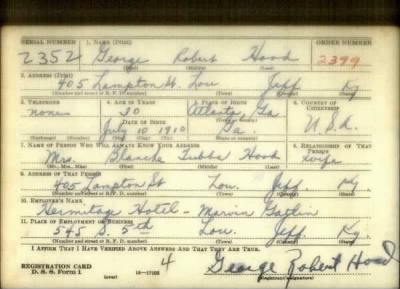 SERIAL NUMBER 1. NAME (Print) ORDER NUMBER
2352 George Robert Hood 2399
(First) (Middle) (Last)
2. ADDRESS (Print)
405 Lampton St. Lou. Jeff. Ky
(Number and street or R. F. D. number) (Town) (County) (State)
3. TELEPHONE 4. AGE IN YEARS 5. PLACE OF BIRTH 6. COUNTRY OF CITIZENSHIP
none 30 Atlanta Ga.
DATE OF BIRTH (Town or county)
July 10 1910 Ga. U.S.A.
(Exchange) (Number) (Mo.) (Day) (Yr.) (State or country)
7. NAME OF PERSON WHO WILL ALWAYS KNOW YOUR ADDRESS 8. RELATIONSHIP OF THAT PERSON
Mrs. Blanche Tubbs Hood wife
(Mr., Mrs., Miss) (First) (Middle) (Last)
9. ADDRESS OF THAT PERSON
405 Lampton St Lou. Jeff. Ky
(Number and street or R. F. D. number) (Town) (County) (State)
10. EMPLOYER'S NAME
Hermitage Hotel - Marvin Gatlin
11. PLACE OF EMPLOYMENT OR BUSINESS
545 S. 5th Lou. Jeff. Ky
(Number and street or R. F. D. number) (Town) (County) (State)
I AFFIRM THAT I HAVE VERIFIED ABOVE ANSWERS AND THAT THEY ARE TRUE.
REGISTRATION CARD
D. S. S. Form 1 (over) 16-17105 4 George Robert Hood
(Registrant's signature)